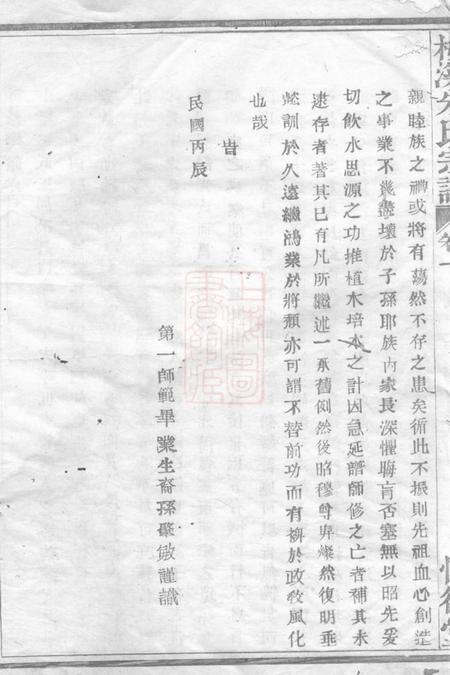 親睦族之禮或將有蕩然不存之患矣循此不振則先祖血心創造
之事業不幾盡壞於子孫耶族內家長深懼晦盲否塞無以昭先爰
切飲水思源之功推植木培本之計因急延譜師修之亡者補其未
逮存者著其已有凡所繼述一承舊例然後昭穆尊卑燦然復明垂
懿訓於久遠繼鴻業於將頹亦可謂不替前功而有裨於政教風化
也哉
旹
民國丙辰
第一師範畢業生裔孫肇敏謹識
氏宗譜
卷一